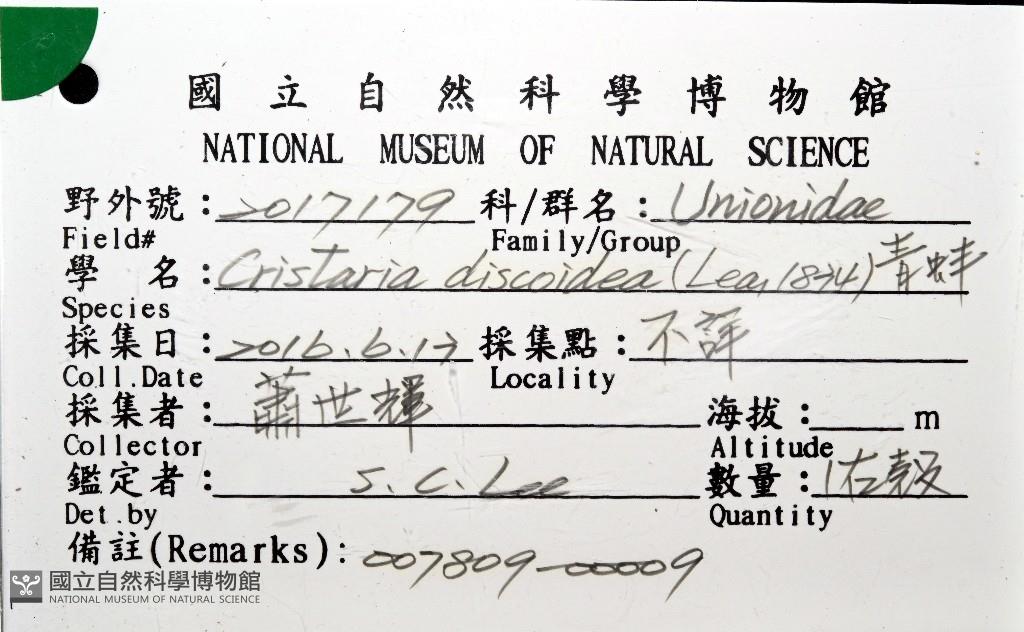 國立自然科學博物館
NATIONAL MUSEUM OF NATURAL SCIENCE
野外號：2017179 科/群名：Unionidae
Field# Family/Group
學 名：Cristaria discoidea (Lea, 1834) 青蚌
Species
採集日：2016.6.17 採集點：不詳
Coll.Date Locality
採集者：蕭世輝 海拔： m
Collector Altitude
鑑定者：S. C. Lee 數量：1右殼
Det.by Quantity
備註(Remarks)：007809-00009
國立自然科學博物館
NATIONAL MUSEUM OF NATURAL SCIENCE